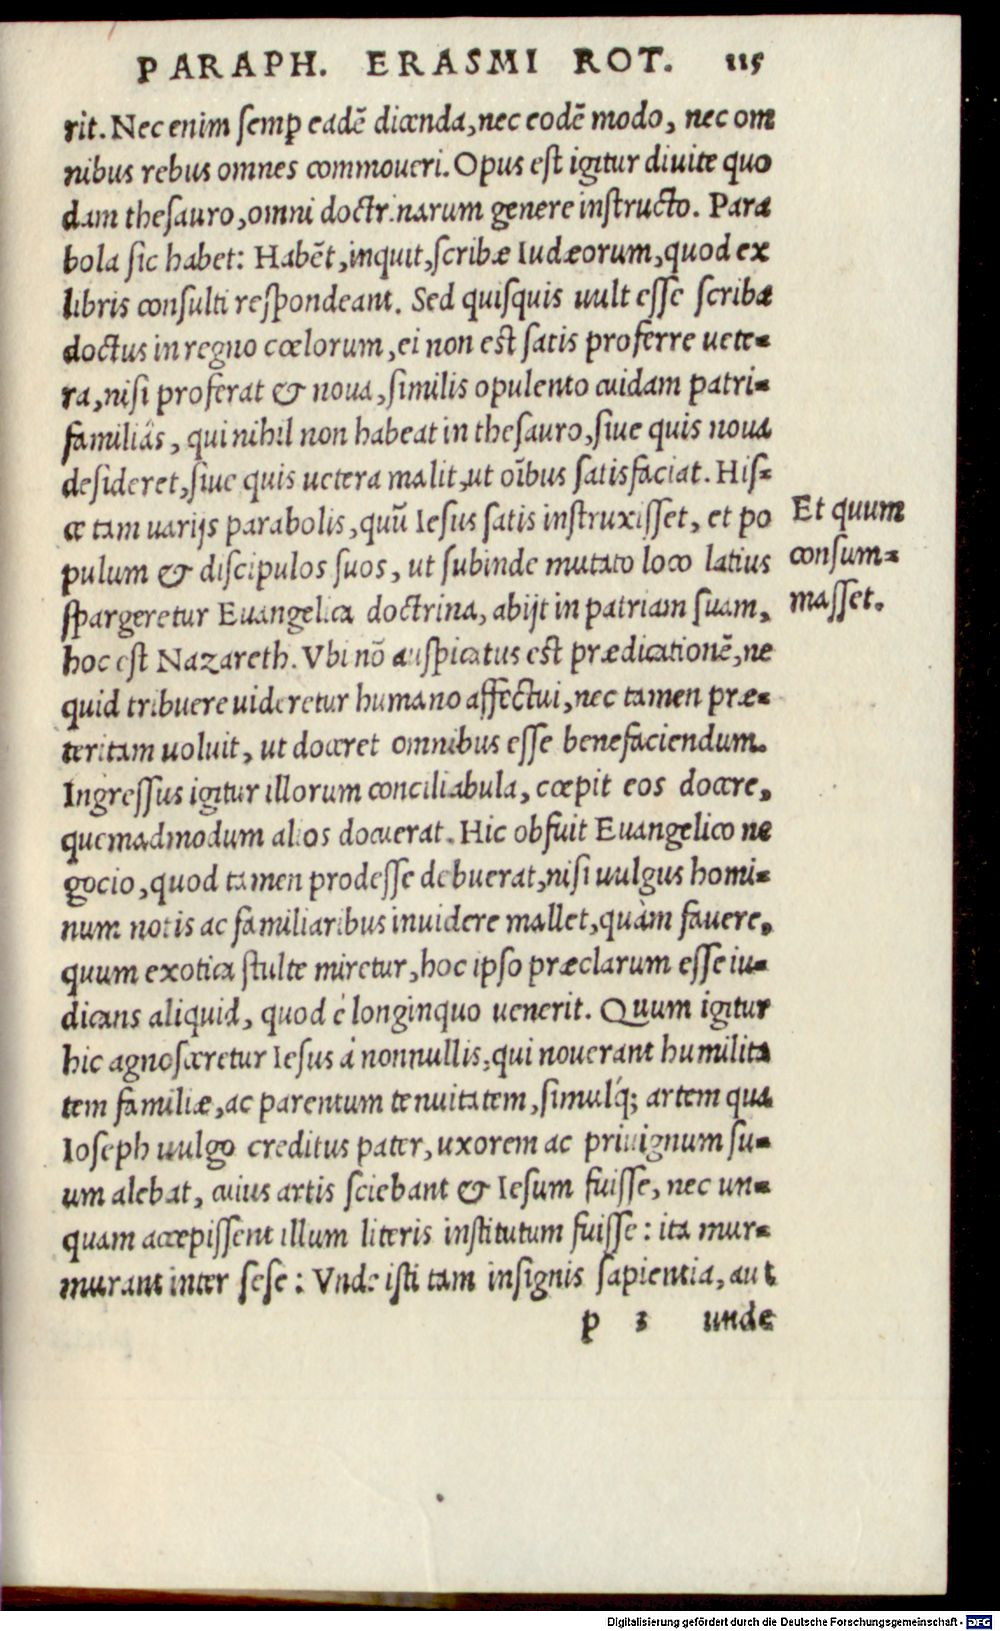 PARAPH. ERASMI ROT. 115
rit. Nec enim ſemꝑ eadē dicenda, nec eodē modo, nec om
nibus rebus omnes commoueri. Opus eſt igitur diuite quo
dam theſauro, omni doctrinarum genere inſtructo. Para
bola ſic habet: Habēt, inquit, ſcribæ Iudæorum, quod ex
libris conſulti reſpondeant. Sed quiſquis uult eſſe ſcriba
doctus in regno cœlorum, ei non eſt ſatis proferre uete-
ra, niſi proferat & noua, ſimilis opulento cuidam patri-
familiâs, qui nihil non habeat in theſauro, ſiue quis noua
deſideret, ſiue quis uetera malit, ut oībus ſatisfaciat. Hiſ-
ce tam uarijs parabolis, quū Ieſus ſatis inſtruxiſſet, et po
Et quum
pulum & diſcipulos ſuos, ut ſubinde mutato loco latius
conſum-
ſpargeretur Euangelica doctrina, abijt in patriam ſuam,
maſſet.
hoc eſt Nazareth. Vbi nō auſpicatus eſt prædicationē, ne
quid tribuere uideretur humano affectui, nec tamen præ-
teritam uoluit, ut doceret omnibus eſſe benefaciendum.
Ingreſſus igitur illorum conciliabula, cœpit eos docere,
quemadmodum alios docuerat. Hic obfuit Euangelico ne
gocio, quod tamen prodeſſe debuerat, niſi uulgus homi-
num notis ac familiaribus inuidere mallet, quàm fauere,
quum exotica ſtulte miretur, hoc ipſo præclarum eſſe iu-
dicans aliquid, quod è longinquo uenerit. Quum igitur
hic agnoſceretur Ieſus à nonnullis, qui nouerant humilita
tem familiæ, ac parentum tenuitatem, ſimulq́; artem qua
Ioſeph uulgo creditus pater, uxorem ac priuignum ſu-
um alebat, cuius artis ſciebant & Ieſum fuiſſe, nec un-
quam accepiſſent illum literis inſtitutum fuiſſe: ita mur-
murant inter ſeſe: Vnde iſti tam inſignis ſapientia, aut
p 3 unde
Digitalisierung gefördert durch die Deutsche Forschungsgemeinschaft - DFG